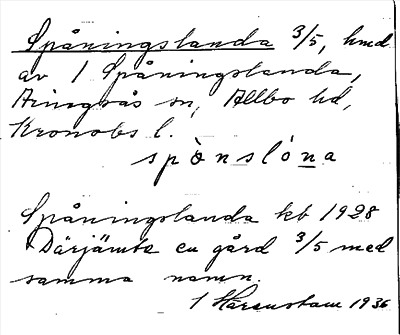 Spåningslanda 3/5, hmd
av 1 Spåningslanda,
Aringsås sn, Allbo hd,
Kronobs l.
spò̀nslóna
Spåningslanda kb 1928
Därjämte en gård 3/5 med
samma namn.
1936